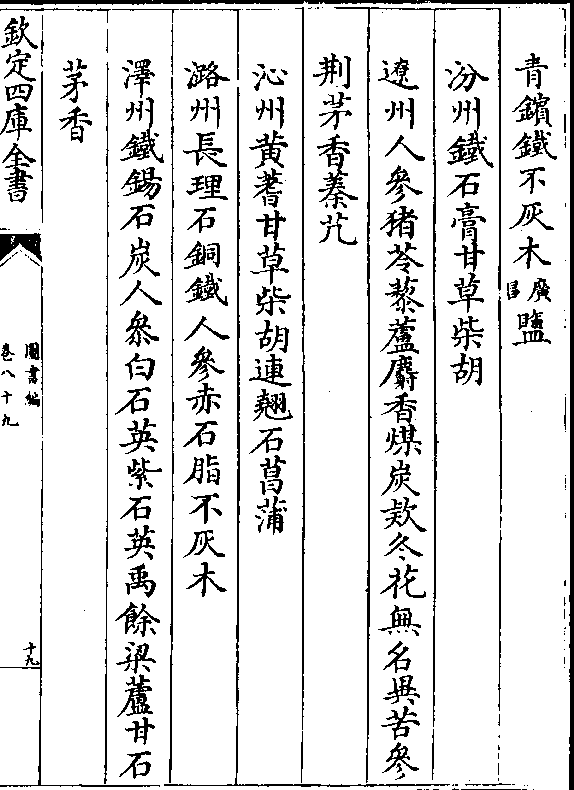 青鑌鐵不灰木廣昌鹽
汾州鐵石膏甘草柴胡
遼州人參猪苓藜蘆麝香煤炭欵冬花無名異苦參
荆茅香蓁艽
沁州黄蓍甘草柴胡連翹石菖蒲
潞州長理石銅鐵人參赤石脂不灰木
澤州鐵錫石炭人參白石英紫石英禹餘梁蘆甘石
茅香
欽定四庫全書
圖書編
卷八十九
十九